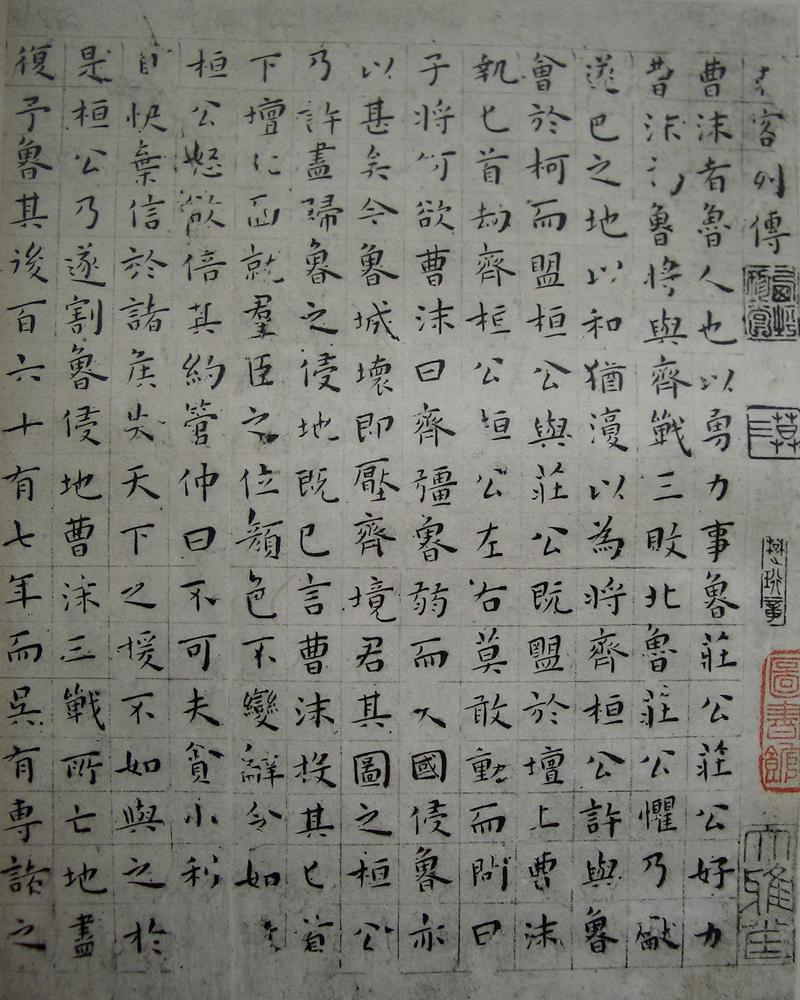 客列傳
曹沫者魯人也以勇力事魯莊公莊公好力
曹沫為魯將與齊戰三敗北魯莊公懼乃獻
遂邑之地以和猶復以為將齊桓公許與魯
會於柯而盟桓公與莊公既盟於壇上曹沫
執匕首劫齊桓公桓公左右莫敢動而問曰
子將何欲曹沫曰齊彊魯弱而大國侵魯亦
以甚矣今魯城壞即壓齊境君其圖之桓公
乃許盡歸魯之侵地既已言曹沫投其匕首
下壇北面就羣臣之位顏色不變辭令如
桓公怒欲倍其約管仲曰不可夫貪小利
自快棄信於諸侯失天下之援不如與之於
是桓公乃遂割魯侵地曹沫三戰所亡地盡
復予魯其後百六十有七年而吳有專諸之
圖書館
大雅堂